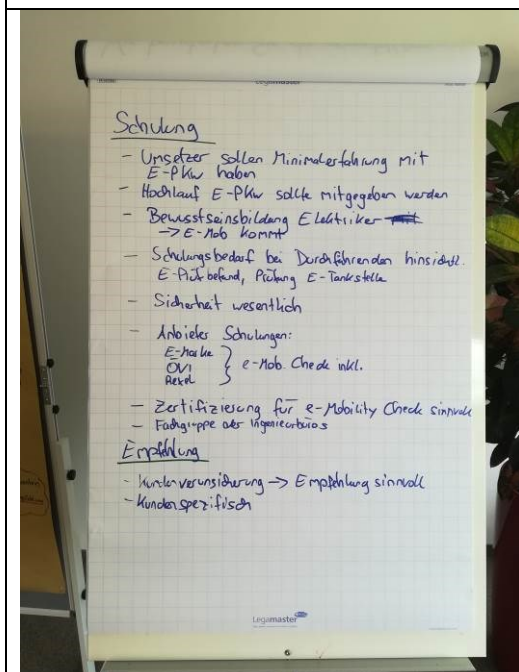 Legamaster
Schulung
- Umsetzer sollen Minimalerfahrung mit
E-PKW haben
- Hochlauf E-PKW sollte mitgegeben werden
- Bewusstseinsbildung Elektriker
→ E-Mob kommt
- Schulungsbedarf bei Durchführenden hinsichtl.
E-Prüfbefund, Prüfung E-Tankstelle
- Sicherheit wesentlich
- Anbieter Schulungen:
E-Marke
ÖVI } e-Mob. Check inkl.
Rexel
- Zertifizierung für e-Mobility Check sinnvoll
- Fachgruppe der Ingenieurbüros
Empfehlung
- Kundenverunsicherung → Empfehlung sinnvoll
- Kundenspezifisch
Legamaster